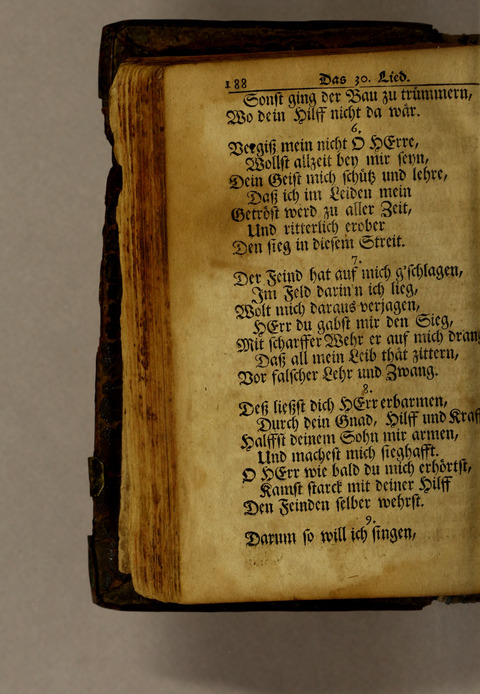 188 Das 30. Lied.
Sonst ging der Bau zu trümmern,
Wo dein Hilff nicht da wär.
6.
Vergiß mein nicht O HErre,
Wollst allzeit bey mir seyn,
Dein Geist mich schütz und lehre,
Daß ich im Leiden mein
Getröst werd zu aller Zeit,
Und ritterlich erober
Den sieg in diesem Streit.
7.
Der Feind hat auf mich g'schlagen,
Im Feld darin'n ich lieg,
Wolt mich daraus verjagen,
HErr du gabst mir den Sieg,
Mit scharffer Wehr er auf mich drang
Daß all mein Leib thät zittern,
Vor falscher Lehr und Zwang.
8.
Deß ließst dich HErr erbarmen,
Durch dein Gnad, Hilff und Kraf
Halffst deinem Sohn mir armen,
Und machest mich sieghafft.
O HErr wie bald du mich erhörtst,
Kamst starck mit deiner Hilff
Den Feinden selber wehrst.
9.
Darum so will ich singen,